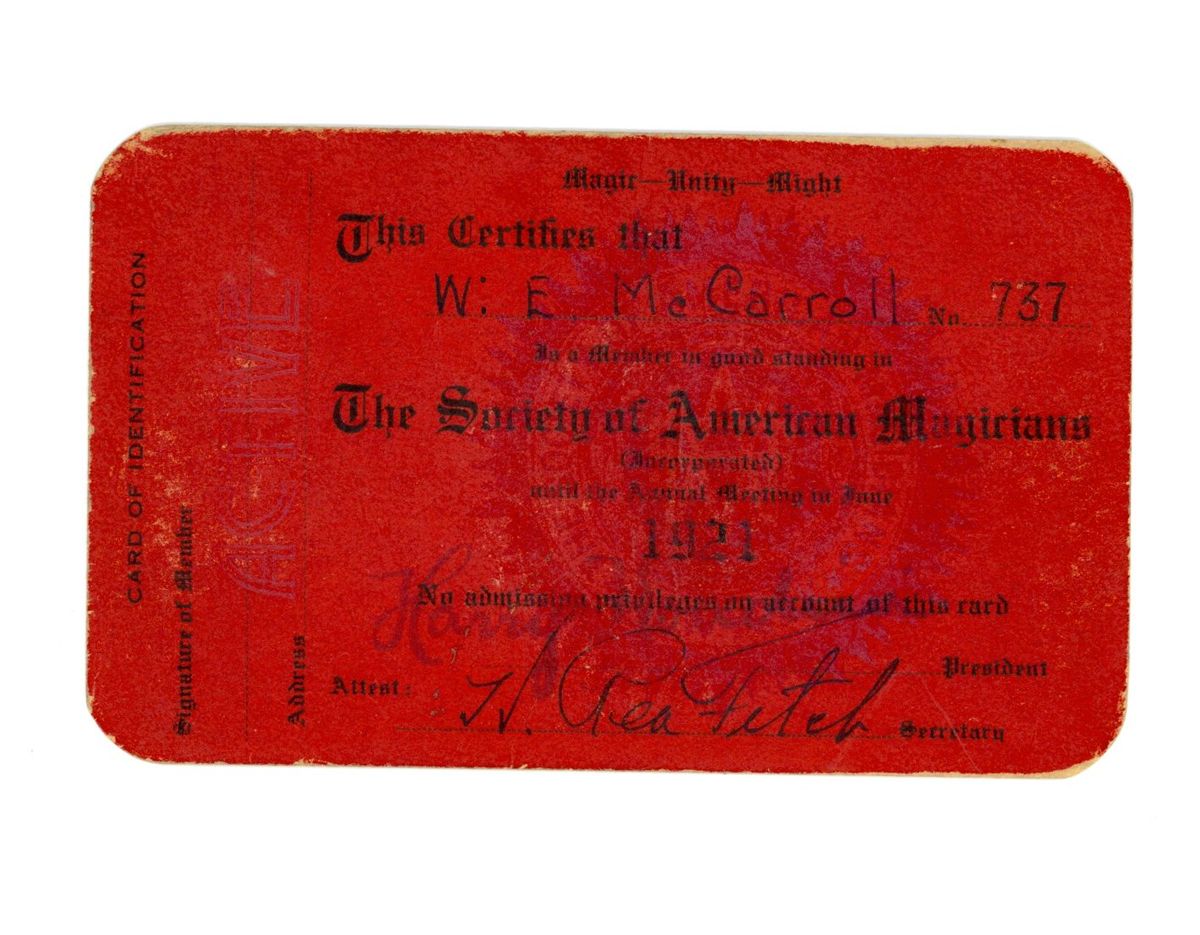 Magic—Unity—Might
This Certifies that
W: E. McCarroll No. 737
Is a Member in good standing in
The Society of American Magicians
(Incorporated)
until the Annual Meeting in June
1921
No admission privileges on account of this card
Harry Houdini
President
Attest: H. Rea Fitch
Secretary
CARD OF IDENTIFICATION
Signature of Member
ACTIVE
Address